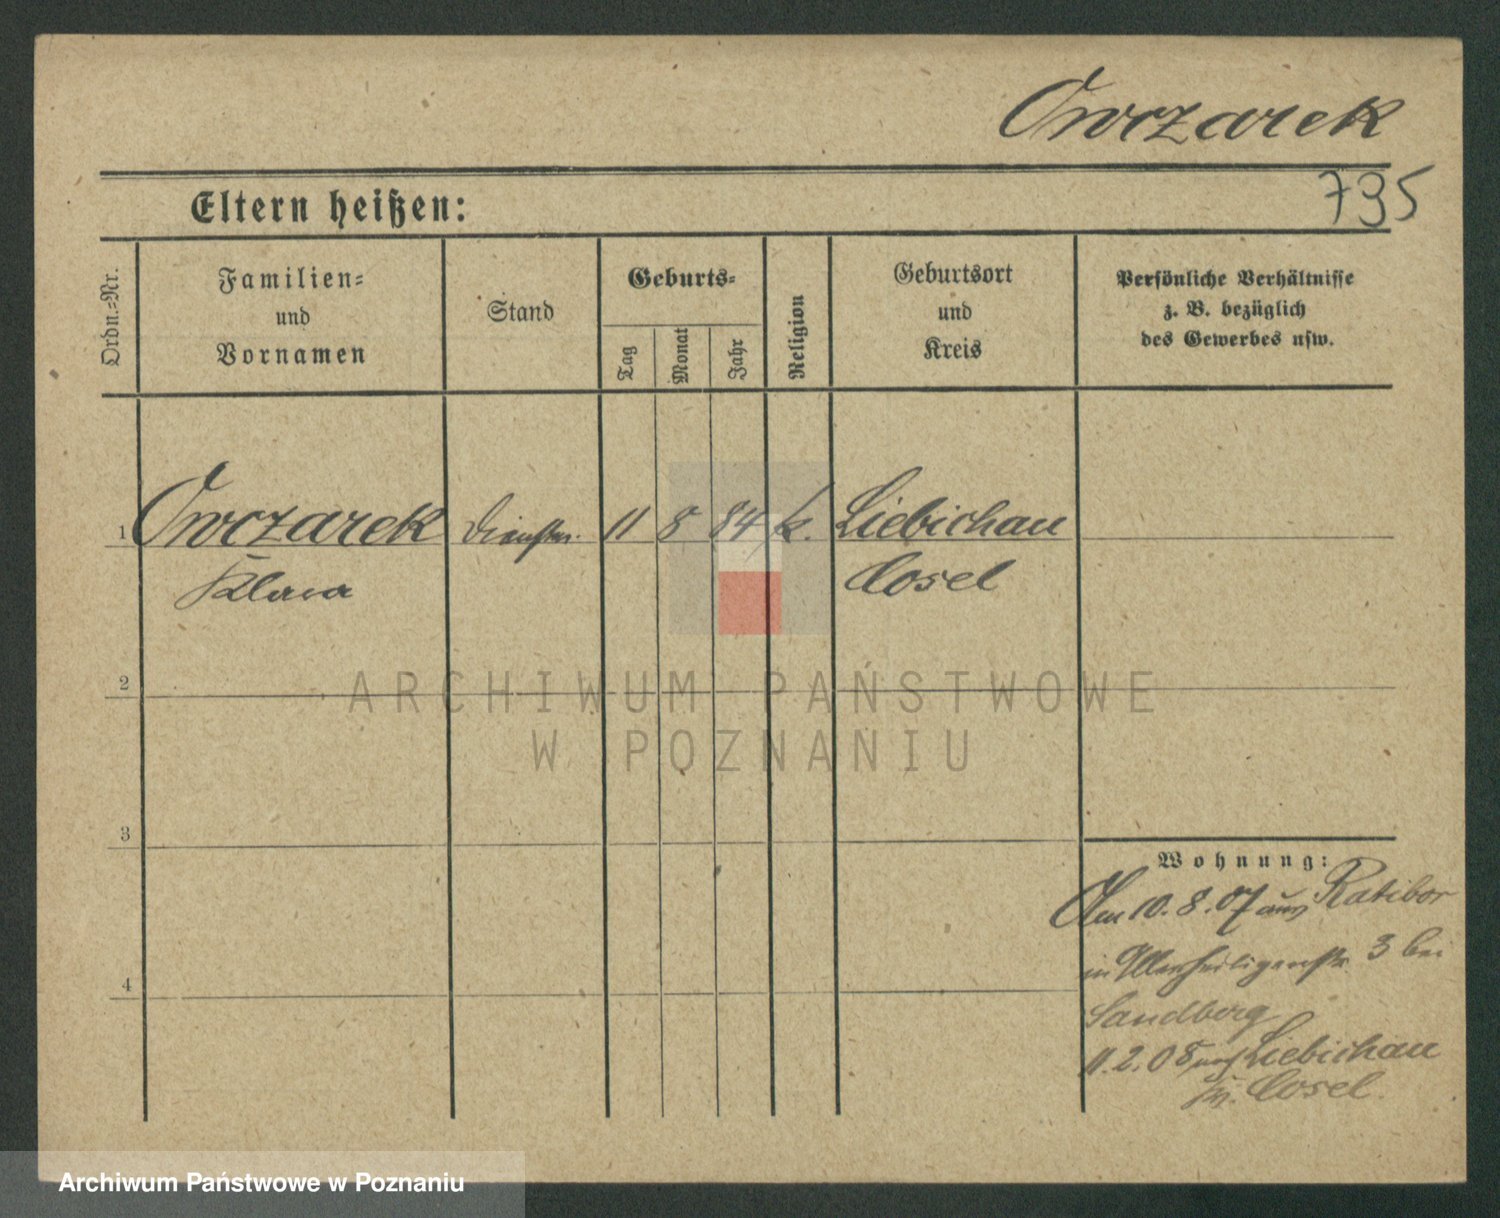 Owczarek
795
Eltern heißen:
Ordn.=Nr.
Familien=
und
Vornamen
Stand
Geburts=
Tag
Monat
Jahr
Religion
Geburtsort
und
Kreis
Persönliche Verhältnisse
z. B. bezüglich
des Gewerbes usw.
1 Owczarek Dienstm. 11 8 84 k. Liebichau
Klara Cosel
2
ARCHIWUM PAŃSTWOWE
W POZNANIU
3
Wohnung:
Am 10. 8. 07 aus Ratibor
in Allerheiligenstr. 3 bei
4
Sandberg
11. 2. 08 nach Liebichau
Kr. Cosel.
Archiwum Państwowe w Poznaniu